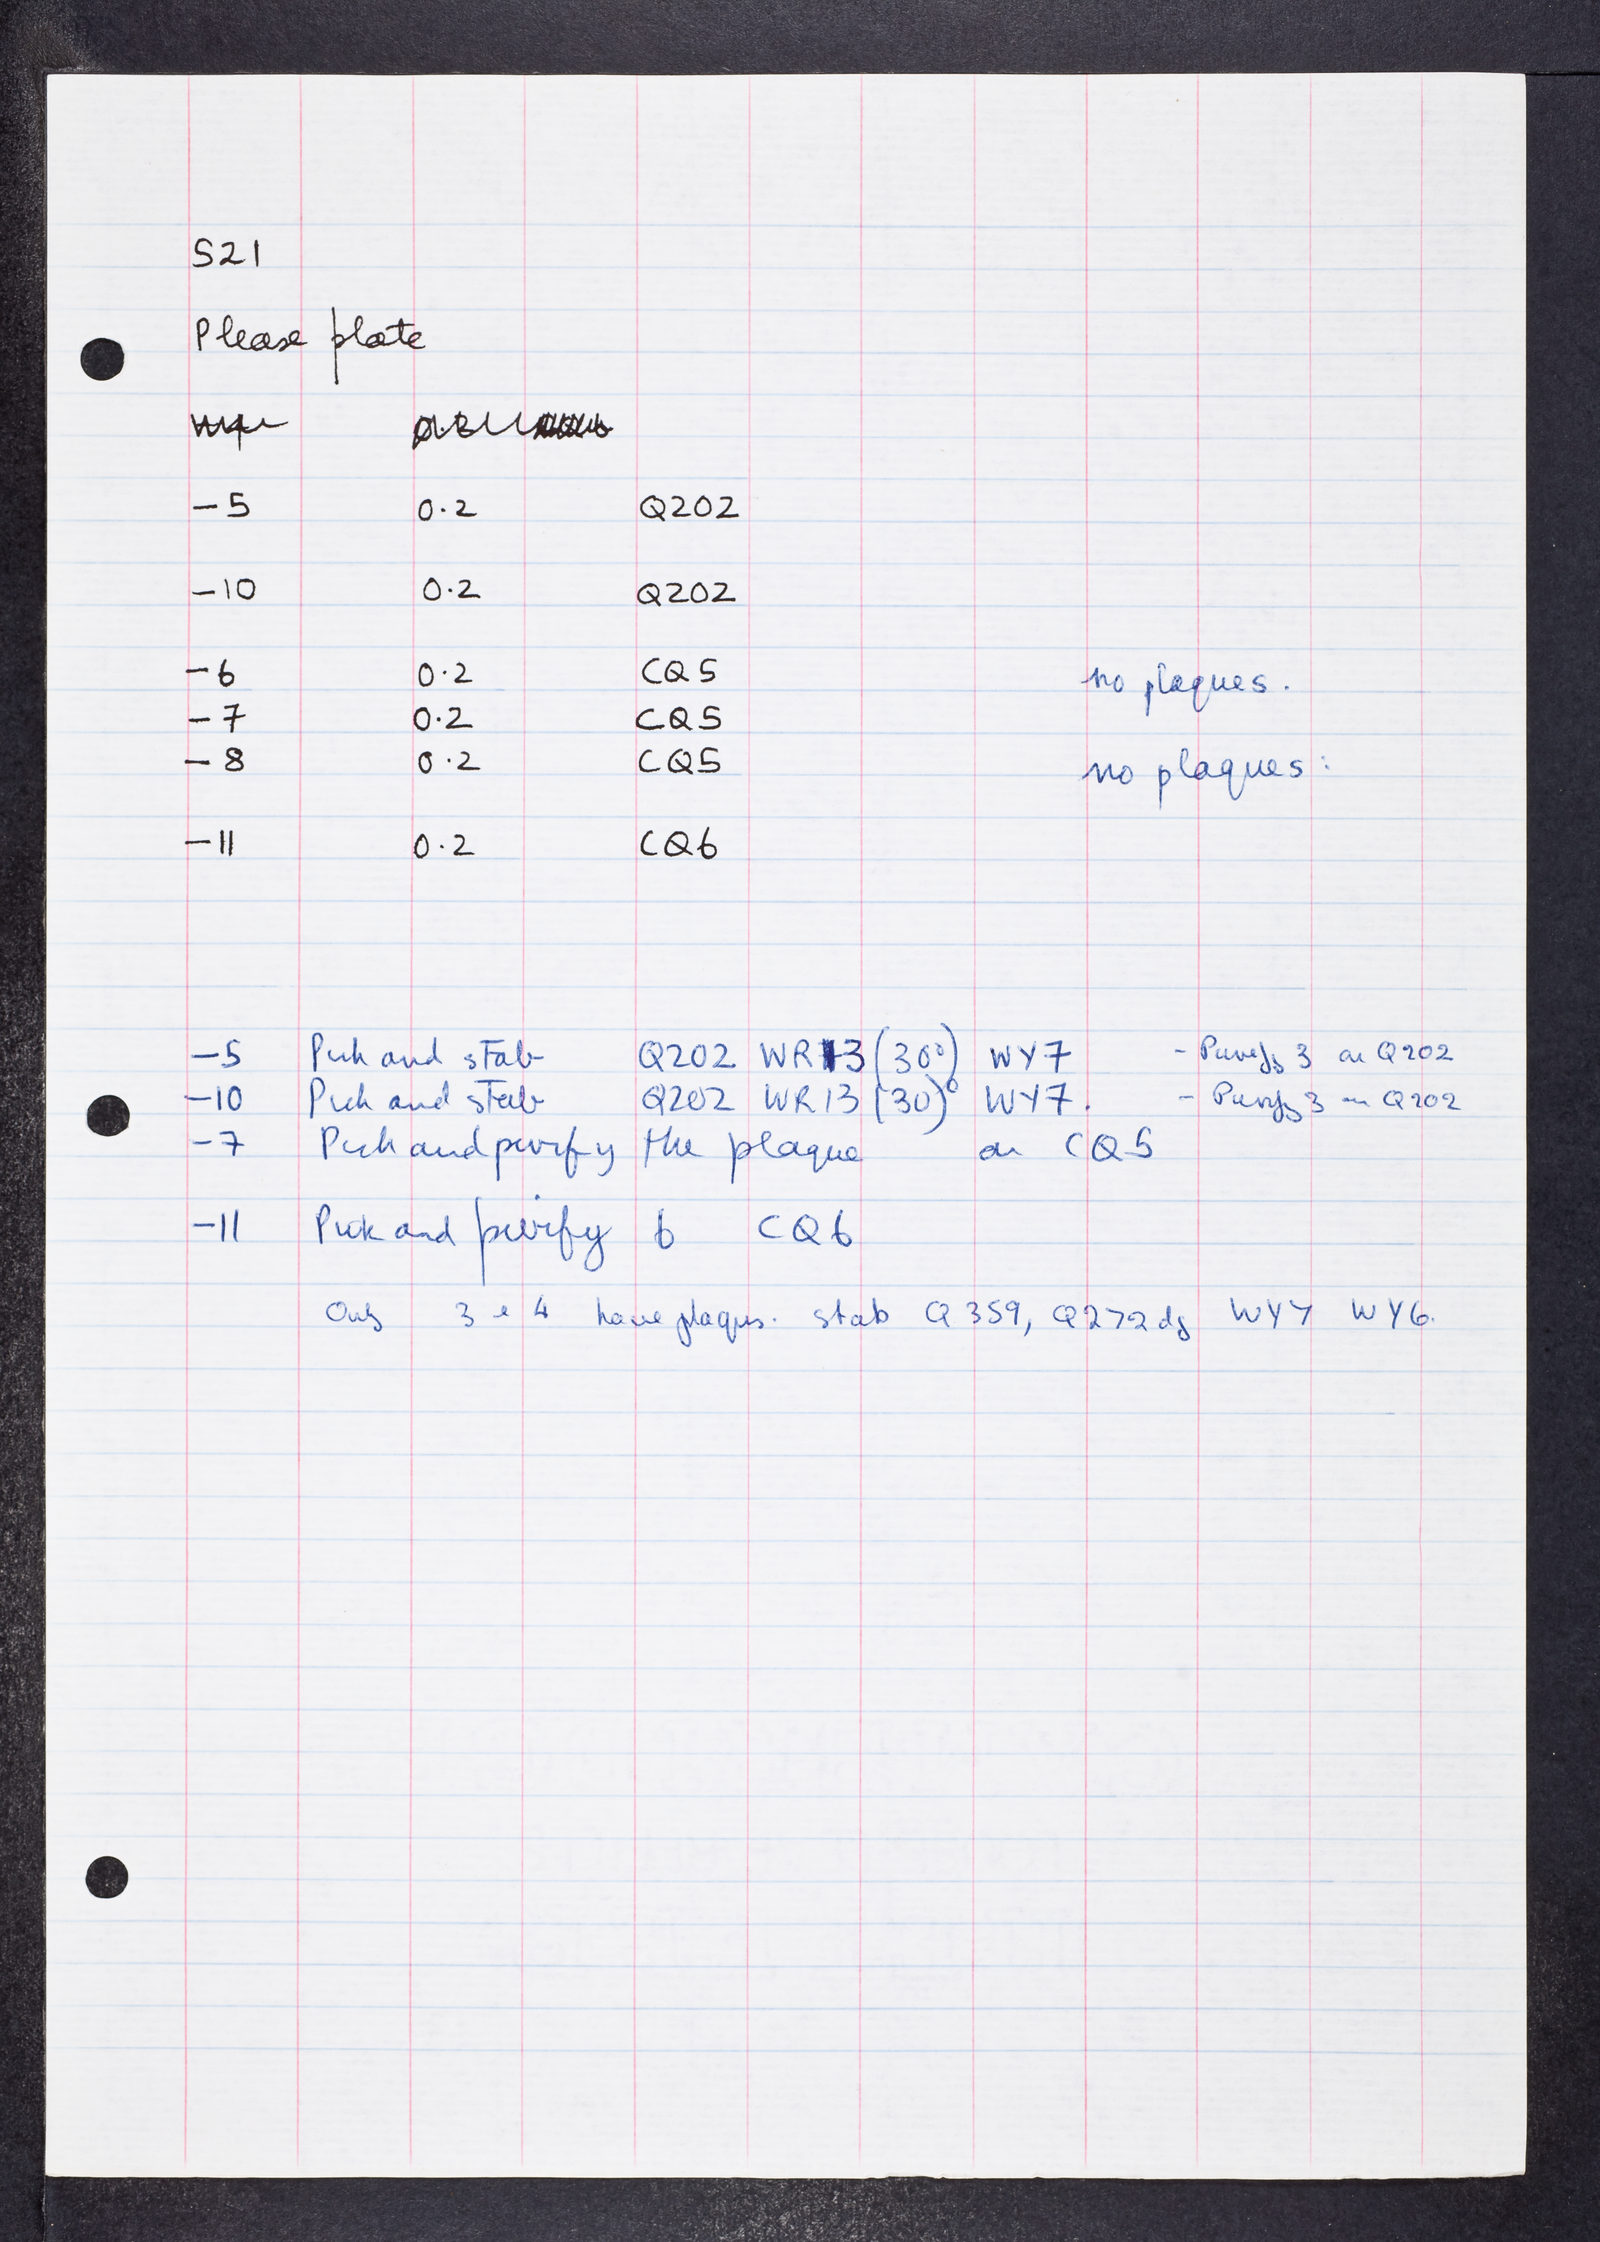 S21
Please plate
-5 0.2 Q202
-10 0.2 Q202
-6 0.2 CQ5 no plaques.
-7 0.2 CQ5
-8 0.2 CQ5 no plaques:
-11 0.2 CQ6
-5 Pick and stab Q202 WR13 (30°) WY7 - Purify 3 on Q202
-10 Pick and stab Q202 WR13 (30)° WY7. - Purify 3 on Q202
-7 Pick and purify the plaque on CQ5
-11 Pick and purify 6 CQ6
Only 3 & 4 have plaques. stab Q359, Q272 WY7 WY6.